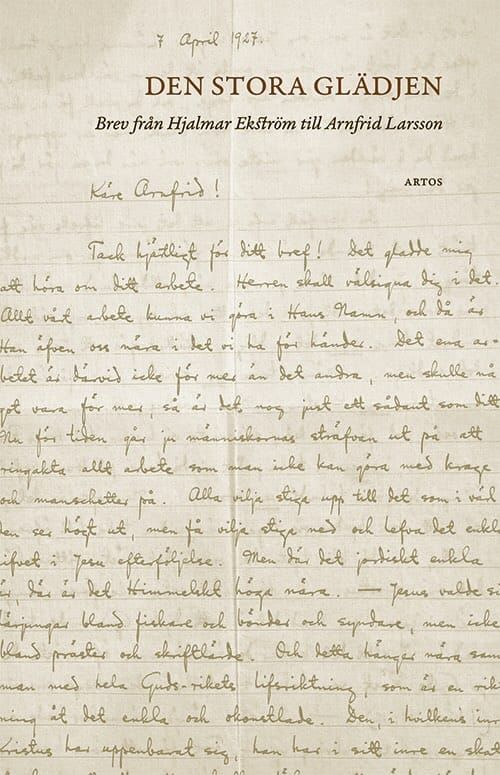 7 April 1927.
DEN STORA GLÄDJEN
Brev från Hjalmar Ekström till Arnfrid Larsson
ARTOS
Käre Arnfrid!
Tack hjätligt för ditt bref! Det gladde mig
att höra om ditt arbete. Herren skall välsigna dig i det.
Allt vårt arbete kunna vi göra i Hans Namn, och då är
Han äfven oss nära i det vi ha för händer. Det ena ar-
betet är därvid icke för mer än det andra, men skulle nå
got vara för mer, så är det nog just ett sådant som ditt
Nu för tiden går ju människornas sträfvan ut på att
ringakta allt arbete som man icke kan göra med krage
och manschetter på. Alla vilja stiga upp till det som i värl
den ser högt ut, men få vilja stiga ned och lefva det enkl
lifvet i Jesu efterföljelse. Men där det jordiskt enkla
är, där är det Himmelskt höga nära. — Jesus valde si
lärjungar bland fiskare och bönder och syndare, men icke
bland präster och skriftlärde. Och detta hänger nära sam
man med hela Guds-rikets lifsriktning, som är en rikt
ning åt det enkla och okonstlade. Den, i hvilkens inr
Kristus har uppenbarat sig, han har i sitt inre en skat